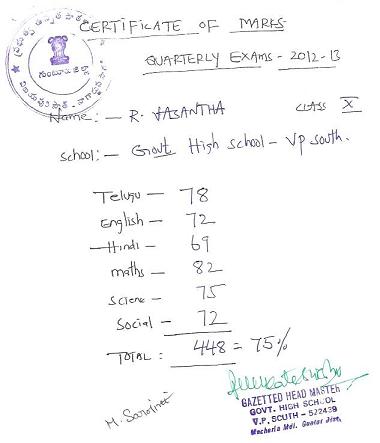 CERTIFICATE OF MARKS
QUARTERLY EXAMS - 2012-13
గుంటూరు జిల్లా
Name :- R. VASANTHA CLASS X
School :- Govt. High School - VP South.
Telugu - 78
English - 72
Hindi - 69
maths - 82
Science - 75
Social - 72
TOTAL : 448 = 75%
GAZETTED HEAD MASTER
GOVT. HIGH SCHOOL
V.P. SOUTH - 522439
Macherla Mdl. Guntur Dist.